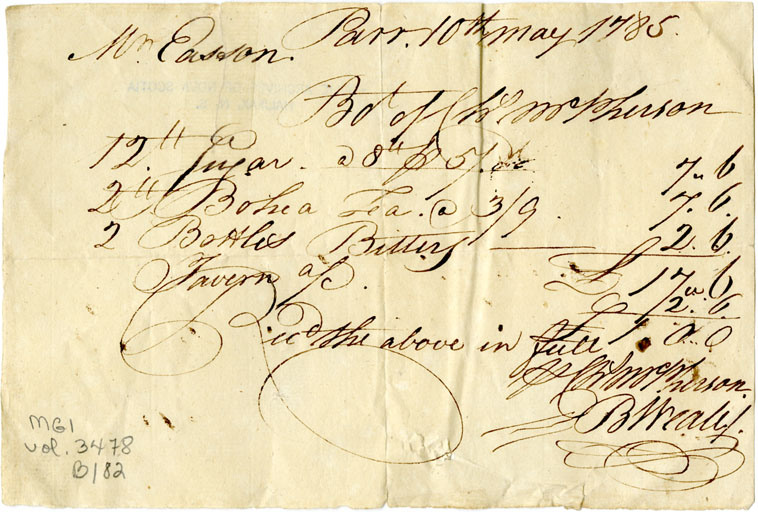 Parr. 10th may 1785.
Mr. Easson.
Bot. of Chs. McPherson
12 lb Sugar. @ 8 lb p 5/. 7 „ 6
2 lb Bohea Tea. @ 3/9. 7. 6.
2 Bottles Bitters 2. 6
£ 17 „ 6
Tavern a/c. 2 „ 6
£ 1 „ 0 „ 0
Recd. the above in full
Chs. McPherson.
MG1
vol. 3478
B/82